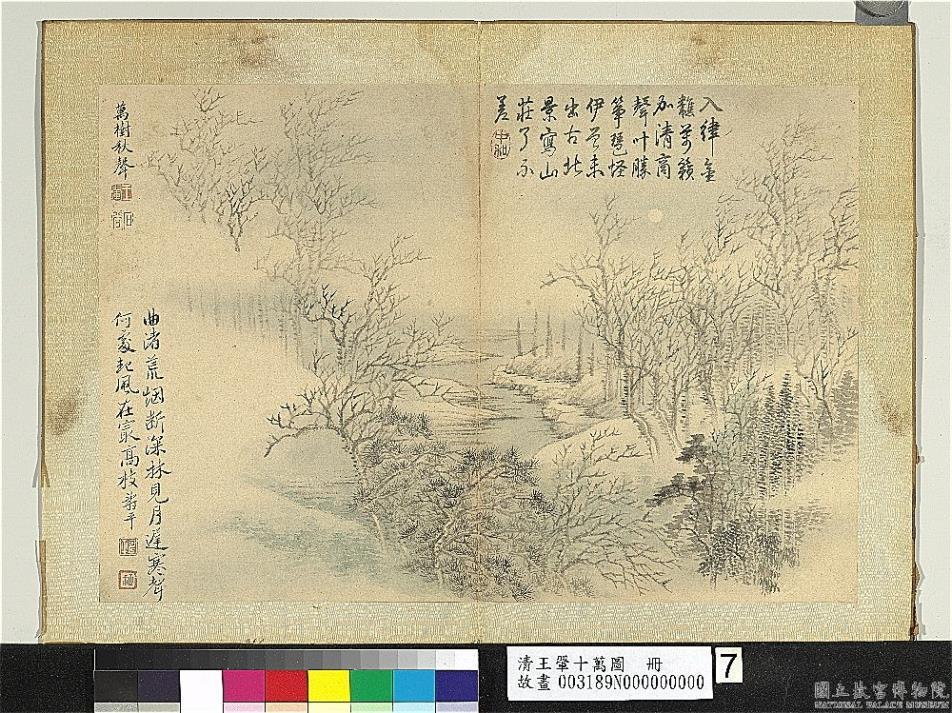 入律金
飈萬籟
加清商
聲叶勝
箏琶怪
伊曾未
出古北
景寫山
莊了不
差
萬樹秋聲
曲渚荒烟斷深林見月遲寒聲
何處起風在最高枝壽平
清王翬十萬圖 冊
故畫 003189N000000000
7
國立故宮博物院
NATIONAL PALACE MUSEUM